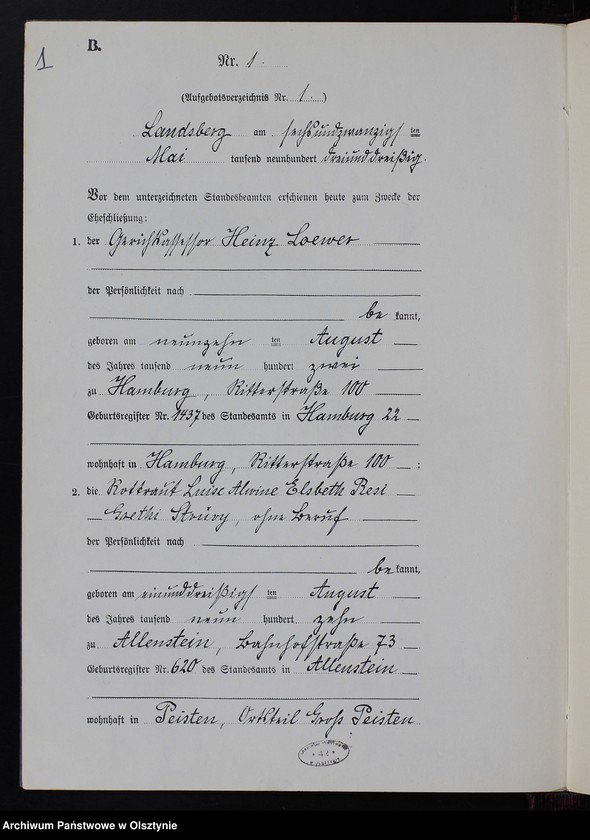 1
B.
Nr. 1.
(Aufgebotsverzeichnis Nr. 1.)
Landsberg am sechsundzwanzigs ten
Mai tausend neunhundert dreiunddreißig.
Vor dem unterzeichneten Standesbeamten erschienen heute zum Zwecke der
Eheschließung:
1. der Gerichtsassessor Heinz Loewer
der Persönlichkeit nach
be kannt,
geboren am neunzehn ten August
des Jahres tausend neun hundert zwei
zu Hamburg, Ritterstraße 100
Geburtsregister Nr. 1437 des Standesamts in Hamburg 22
wohnhaft in Hamburg, Ritterstraße 100 :
2. die Rottraut Luise Alwine Elsbeth Resi
Grethi Struvy, ohne Beruf
der Persönlichkeit nach
be kannt,
geboren am einunddreißigs ten August
des Jahres tausend neun hundert zehn
zu Allenstein, Bahnhofstraße 73
Geburtsregister Nr. 620 des Standesamts in Allenstein
wohnhaft in Peisten, Ortsteil Gross Peisten
Archiwum Państwowe w Olsztynie